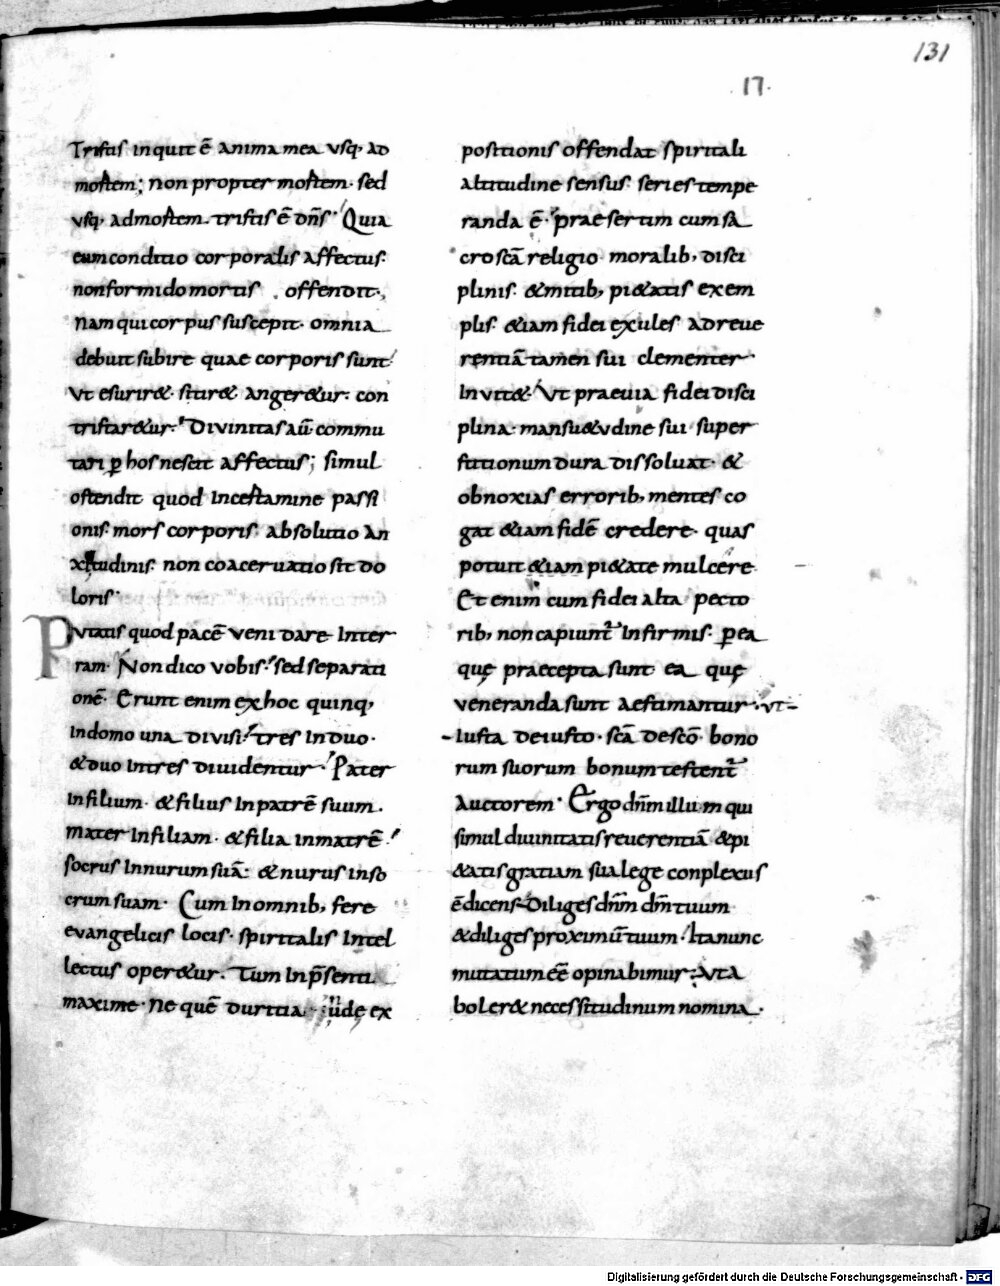 131
17.
Tristis inquit ē anima mea usq; ad
mortem; non propter mortem. sed
usq; admortem. tristis ē dn̄s. Quia
eum conditio corporalis affectus.
non formido mortis offendit.
Nam qui corpus suscepit. omnia
debuit subire quae corporis sunt.
Ut esurir& sitir& anger&ur. con
tristar&ur. Divinitas aū commu
tari p hos nescit affectus; simul
ostendit quod incertamine passi
onis. mors corporis. absolutio an
xi&udinis. non coaceruatio sit do
loris.
Putatis quod pacē veni dare inter
ram. Non dico vobis. sed separati
onē. Erunt enim exhoc quinq;
indomo una divisi. tres induo.
&duo intres dividentur. Pater
infilium. &filius inpatrē suum.
mater infiliam. &filia inmatrē.
socrus innurum suā. &nurus inso
crum suam. Cum inomnib; fere
evangelicis locis. spiritalis intel
lectus oper&ur. Tum inpsenti
maxime. Ne quē duritia ex
positionis offendat spiritali
altitudine sensus. series tempe
randa ē. praesertim cum sa
cro scā religio moralib; disci
plinis. &mitib; pi&atis exem
plis. &iam fidei exules adreue
rentiā tamen sui clementer
invit&. Ut praeuia fidei disci
plina. mansu&udine sui super
stitionum dura dissoluat. &
obnoxias errorib; mentes co
gat &iam fidē credere. quas
potuit &iam pi&ate mulcere
Et enim cum fidei alta pecto
rib; non capiunt infirmis. pea
quę praecepta sunt ea quę
veneranda sunt aestimantur. ut
iusta deiusto. scā descō. bono
rum suorum bonum testent
auctorem. Ergo dn̄m illum qui
simul divinitatis reuerentiā &pi
&atis gratiam sua lege conplexus
ē dicens. Diliges dn̄m dm̄ tuum
&diliges proximū tuum. Ita nunc
mutatum eē opinabimur. uta
boler& necessitudinum nomina.
Digitalisierung gefördert durch die Deutsche Forschungsgemeinschaft - DFG